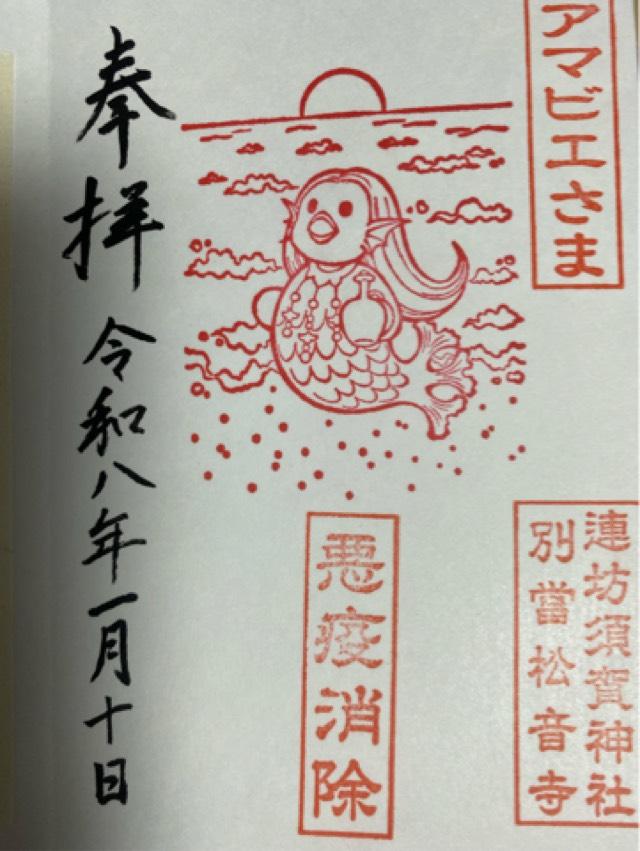 アマビエさま
連坊須賀神社
別當松音寺
悪疫消除
奉拝 令和八年一月十日